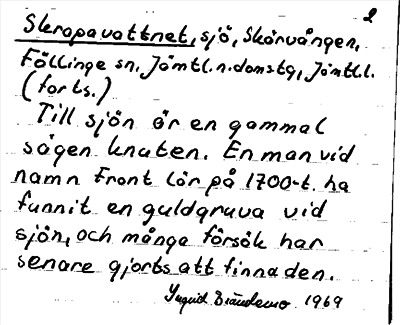 2
Skropavattnet, sjö, Skärvången,
Föllinge sn, Jämtl.n.domstg, Jämtl.l.
(forts.)
Till sjön är en gammal
sägen knuten. En man vid
namn Front lär på 1700-t. ha
funnit en guldgruva vid
sjön, och många försök har
senare gjorts att finna den.
Ingrid 1969